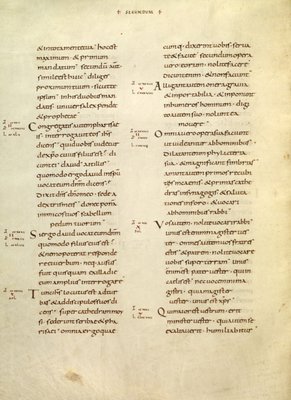 SECUNDUM
& in tota mente tua hoc est
maximum & primum
mandatum secundū aūt
simile est huic diliges
proximum tuum sicut te
ipsum in his duobus man
datis universa lex pendet
& prophetae
Congregatis autem pharisaeis
interrogavit eos ihs
dicens quid vobis videtur
de xpo cuius filius est di
cunt ei david ait illis
quomodo ergo david in spu
vocat eum dnm dicens
dixit dns dno meo sede a
dextris meis donec ponam
inimicos tuos scabellum
pedum tuorum
Si ergo david vocat eum dnm
quomodo filius eius est
& nemo poterat responde
re ei verbum neque ausus
fuit quisquam ex illa die
eum amplius interrogare
Tunc ihs locutus est ad tur
bas & ad discipulos suos di
cens super cathedram mo
si sederunt scribae & pha
risaei omnia ergo quae
cumq. dixerint vobis serva
te & facite secundum opera
vero eorum nolite facere
dicunt enim & non faciunt
Alligant autem onera gravia
& importabilia & inponunt
in umeros hominum digi
to autem suo nolunt ea
movere
Omnia vero opera sua faciunt
ut videantur ab hominibus
dilatant enim phylacteria
sua & magnificant fimbrias
amant autem primos recubi
tus in cenis & primas cathe
dras in synagogis & saluta
tiones in foro & vocari
ab hominibus rabbi
Vos autem nolite vocari rabbi
unus est enim magister ves
ter omnes autem vos fratres
estis & patrem nolite vocare
vobis super terram unus
est enim pater vester qui in
caelis est nec vocemini ma
gistri quia magister
vester unus est xps
Qui maior est vestrum erit
minister vester qui autem se
exaltaverit humiliabitur